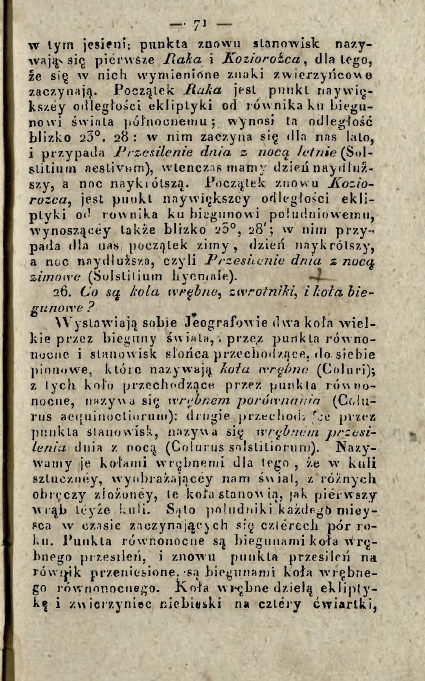 — 71 —
w tym jesieni; punkta znowu stanowisk nazy-
wają się pierwsze Raka i Koziorożca, dla tego,
że się w nich wymienione znaki zwierzyńcowe
zaczynają. Początek Raka jest punkt naywię-
kszéy odległości ekliptyki od równika ku biegu-
nowi świata północnemu; wynosi ta odległość
blizko 23°. 28: w nim zaczyna się dla nas lato,
i przypada Przesilenie dnia z nocą letnie (Sol-
stitium aestivum), wtenczas mamy dzień naydłuż-
szy, a noc naykrótszą. Początek znowu Kozio-
rożca, jest punkt naywiększey odległości ekli-
ptyki od rownika ku biegunowi południowemu,
wynoszącéy także blizko 23°, 28'; w nim przy-
pada dla nas początek zimy, dzień naykrótszy,
a noc naydłuższa, czyli Przesilenie dnia z nocą
zimowe (Solstitium hyemale).
26. Co są koła wrębne, zwrotniki, i koła bie-
gunowe?
Wystawiają sobie Jeografowie dwa koła wiel-
kie przez bieguny świata, i przez punkta równo-
nocne i stanowisk słońca przechodzące, do siebie
pionowe, które nazywają koła wrębne (Coluri);
z tych koło przechodzące przez punkta równo-
nocne, nazywa się wrębnem porównania (Colu-
rus aequinoctiorum): drugie przechodzące przez
punkta stanowisk, nazywa się wrębnem przesi-
lenia dnia z nocą (Colurus solstitiorum). Nazy-
wamy je kołami wrębnemi dla tego, że w kuli
sztucznéy, wyobrażającéy nam świat, z różnych
obręczy złożonéy, te koła stanowią, jak piérwszy
wrąb téyże kuli. Są to południki każdego miey-
sca w czasie zaczynających się czterech pór ro-
ku. Punkta równonocne są biegunami koła wrę-
bnego przesileń, i znowu punkta przesileń na
równik przeniesione, są biegunami koła wrębne-
go równonocnego. Koła wrębne dzielą eklipty-
kę i zwierzyniec niebieski na cztéry ćwiartki,